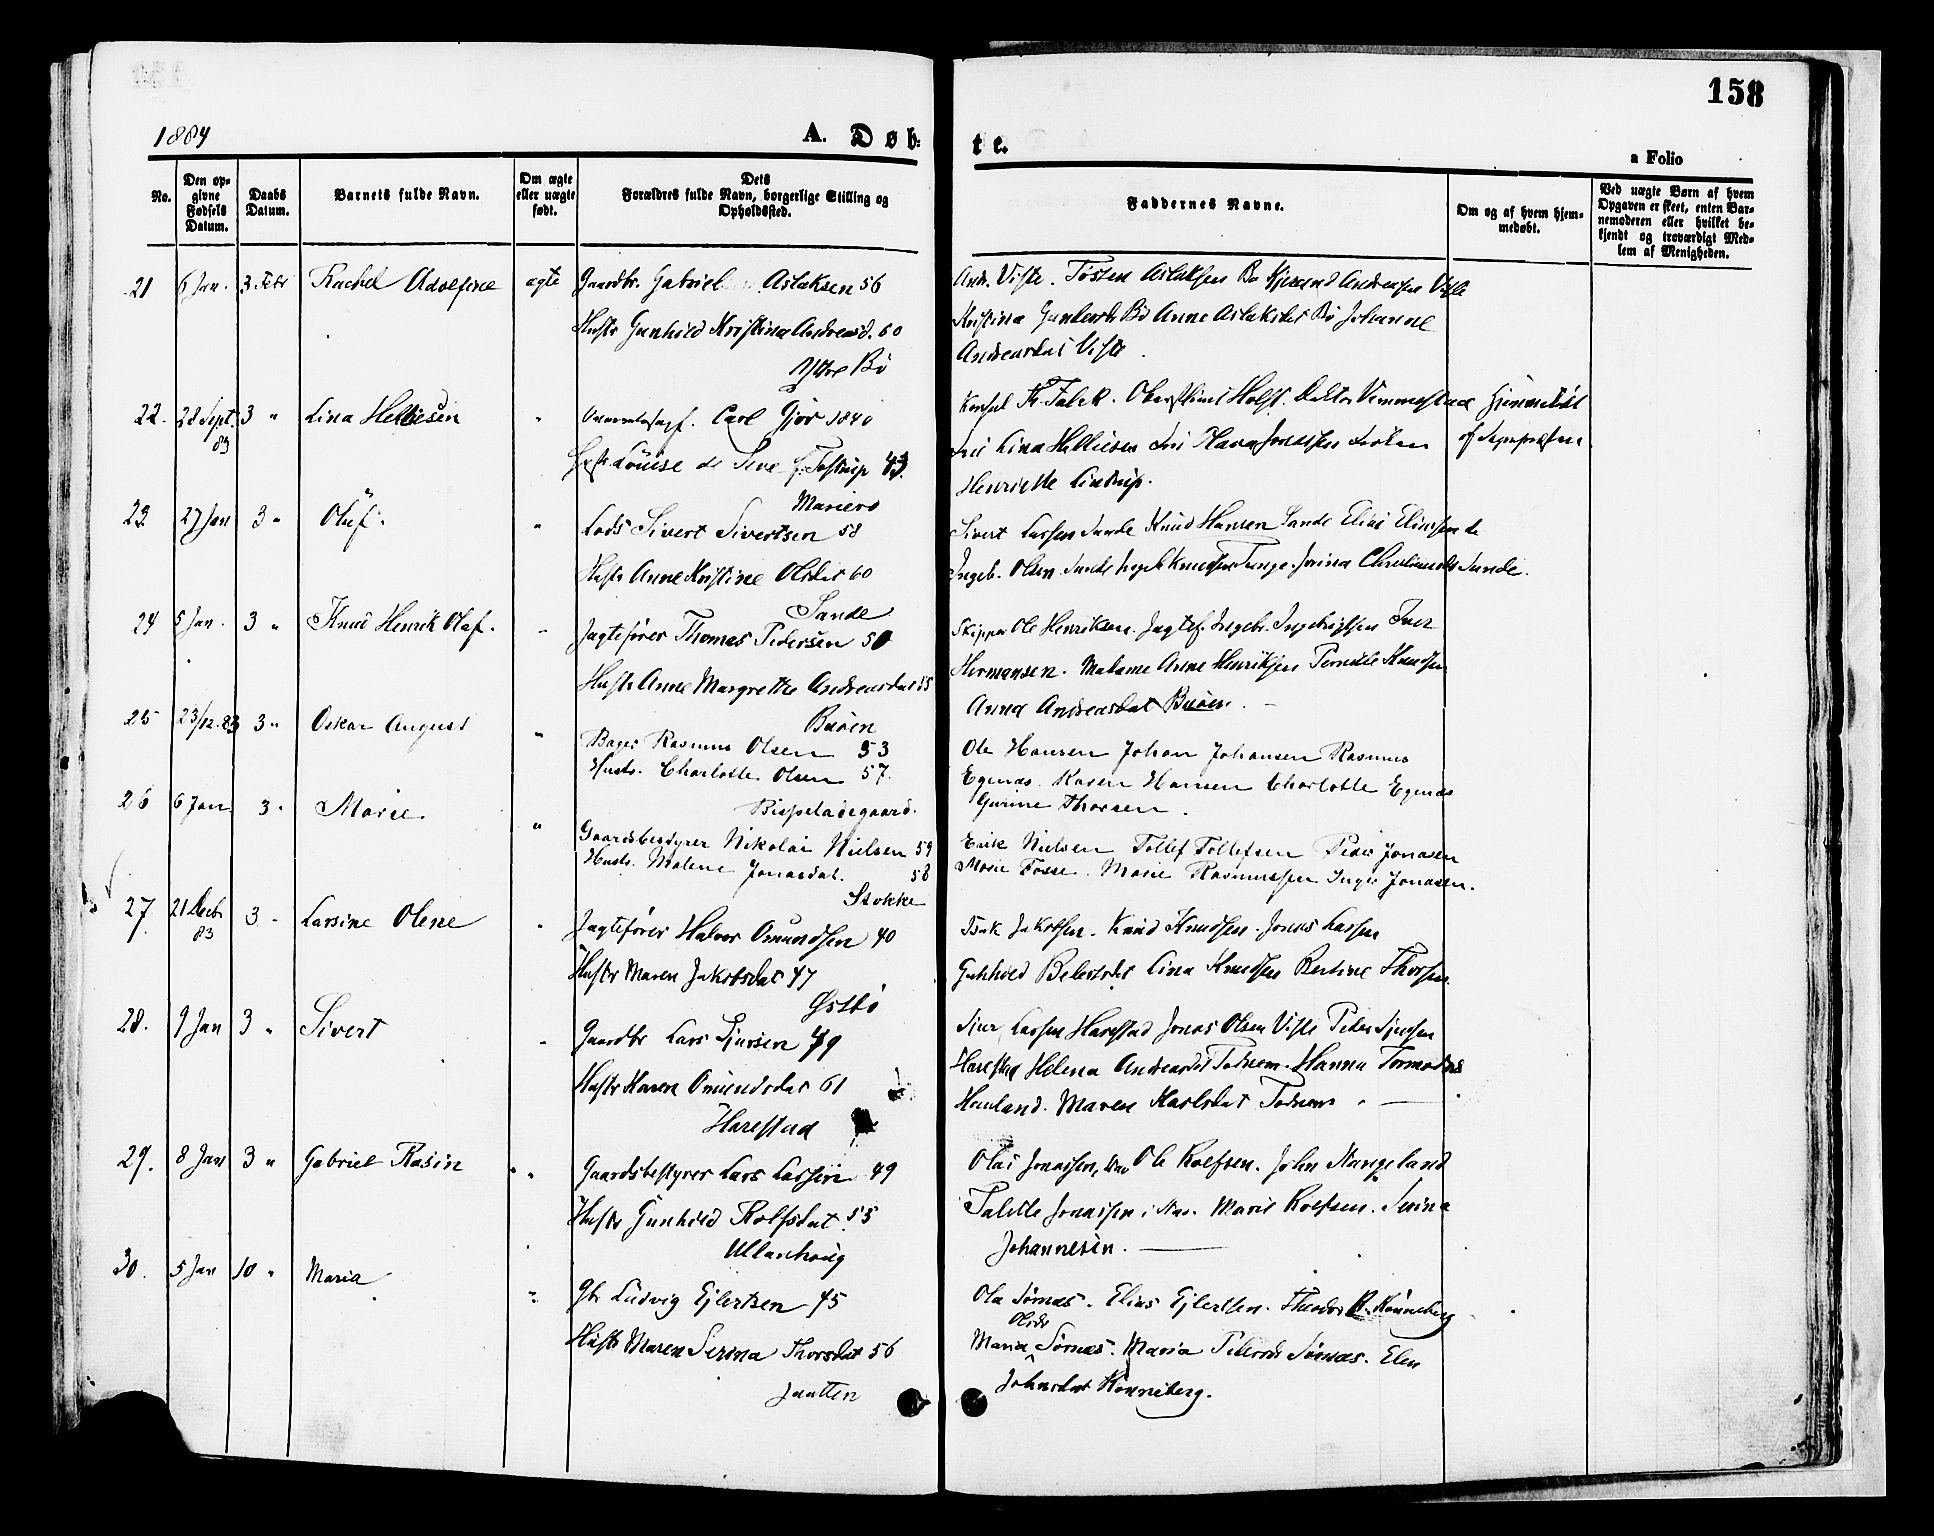 158
1884
A. Døb-
te.
a Folio
No.
Den op-
givne
Fødsels
Datum.
Daabs
Datum.
Barnets fulde Navn.
Om ægte
eller uægte
født.
Dets
Forældres fulde Navn, borgerlige Stilling og
Opholdssted.
Faddernes Navne.
Om og af hvem hjem-
medøbt.
Ved uægte Børn af hvem
Opgaven er skeet, enten Bar-
nemoderen eller hvilket be-
kjendt og troværdigt Med-
lem af Menigheden.
21 6 Jan. 3 Febr Rachel Adolfine ægte Gaardbr. Gabriel Aslaksen 56
Hustr Gunhild Kristina Andreasd. 60
Ytre Bø
Andr. Viste. Tosten Aslaksen Bø Andreasen Viste
Kristina Bø Anne Aslaksdat Bø Johanne
Andreasdat Viste
22. 28 Sept. 83 3 " Lina Helliesen " Carl Gjør 1840
Hustr Louise de Seve f. Tostrup 43.
Mariero
Konsul Fr. Falck. Holst. Doktor Vemmestad hjemmedøbt
Lina Helliesen Jonassen Frøken
Henriette
23 27 Jan 3 " Oluf. " Lods Sivert Sivertsen 58
Hustr Anne Kristine Olsdat 60
Sande
Sivert Larsen Sande Knud Hansen Sande Elias
Ingeb. Olsen Sande Knudsen Tunge. Jorina Sande.
24 5 Jan. 3 " Knud Henrik Olaf. " Jagtefører Thomas Pedersen 50
Hustr Anne Margrethe Andreasdat 55
Buøen
Skipper Ole Henriksen. Jagtef. Ingebr. Ingebrigtsen Iver
Hermansen. Madame Anne Henriksen Pernille Knudsen
Anna Andreasdat Buøen. -
25 23/12.83 3 " Oskar August " Bager Rasmus Olsen 53
Hustr. Charlotte Olsen 57.
Bispeladegaard.
Ole Hansen Johan Johansen Rasmus
Egenæs. Karen Hansen Charlotte Egenæs
Gurine Thorsen.
26 6 Jan 3 " Marie. " Gaardsbestyrer Nikolai Nielsen 59
Hustr. Malene Jonasdat. 58
Stokke
Enok Nielsen Tollef Tollefsen Peder Jonasen
Marie Fosse. Marie Rasmussen Inger Jonasen.
27. 21 Decb 83 3 " Larsine Olene " Jagtefører Halvor Omundsen 40
Hustr Maren Jakobsdat 47
Østbø
Isak Jakobsen. Knud Knudsen. Jonas Larsen
Gunhild Lina Knudsen Bertine Thorsen.
28. 9 Jan 3 " Sivert " Gaardbr Lars Sjursen 49
Hustr Karen Omundsdat 61
Harestad
Sjur Larsen Harestad Jonas Olsen Viste Peder Sjursen
Harestad Helena Andreasdat Todnem. Hanna Tormodsd
Maren Karlsdat Todnem
29. 8 Jan 3 " Gabriel Rasin " Gaardsbestyrer Lars Larsen 49
Hustr Gunhild Rolfsdat 55
Ullenhoug
Olai Jonassen, Ole Rolfsen. John
Talette Jonassen Marie Rolfsen. Serina
Johannesen.
30. 5 Jan 10 " Maria " Gbr Ludvig Ejlertsen 45
Hustr Maren Serina Thorsdat 56
Jaatten
Ola Sørnæs. Elias Ejlertsen. Theodor R. Kønneberg
Olsdr
Maria Sørnæs. Maria Pedersdr Sørnæs. Elen
Johnsdat Kønneberg.